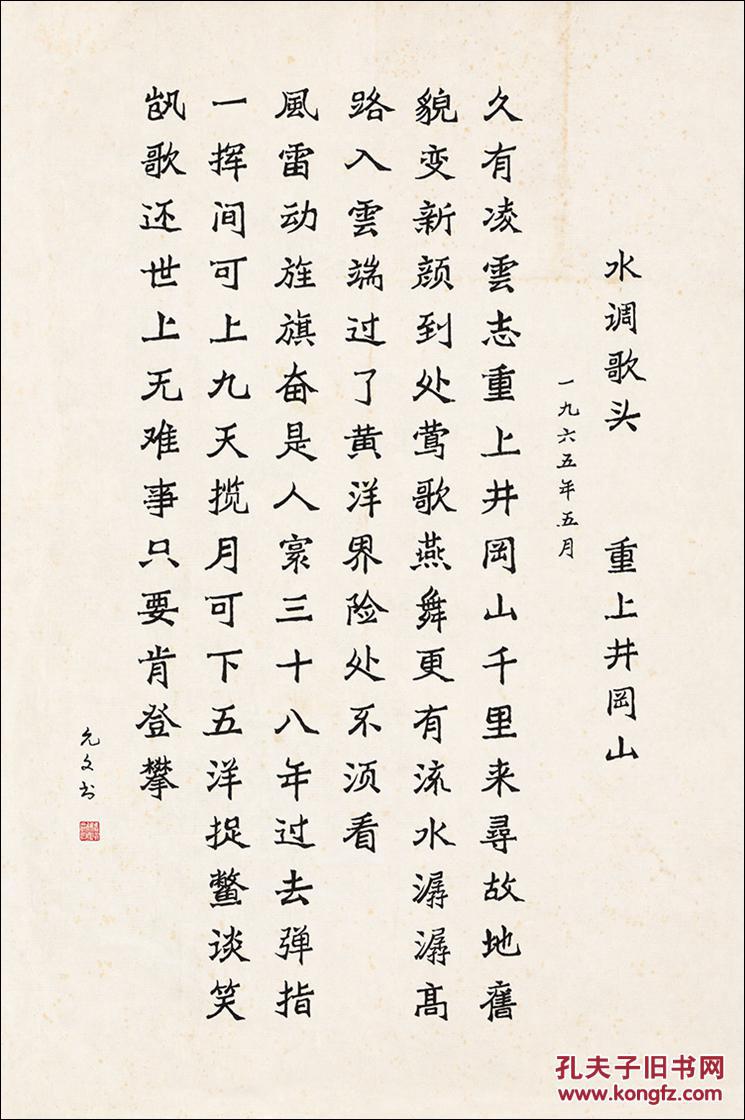 水调歌头 重上井岡山
一九六五年五月
久有凌雲志重上井岡山千里来尋故地舊
貌变新颜到处莺歌燕舞更有流水潺潺高
路入雲端过了黄洋界险处不须看
風雷动旌旗奋是人寰三十八年过去弹指
一挥间可上九天揽月可下五洋捉鳖谈笑
凯歌还世上无难事只要肯登攀
元文书
孔夫子旧书网
www.kongfz.com